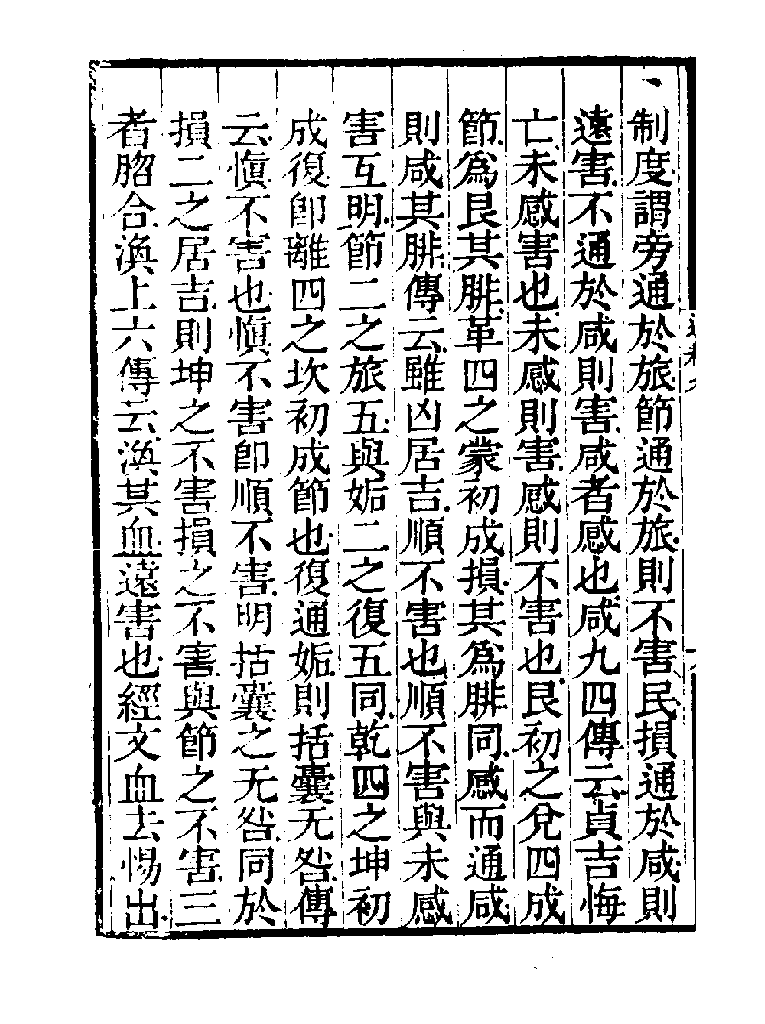 制度謂旁通於旅節通於旅則不害民損通於咸則
遠害不通於咸則害咸者感也咸九四傳云貞吉悔
亡未感害也未感則害感則不害也艮初之兌四成
節爲艮其腓革四之蒙初成損其爲腓同感而通咸
則咸其腓傳云雖凶居吉順不害也順不害與未感
害互明節二之旅五與姤二之復五同乾四之坤初
成復卽離四之坎初成節也復通姤則括囊无咎傳
云愼不害也愼不害卽順不害明括囊之无咎同於
損二之居吉則坤之不害損之不害與節之不害三
者脗合渙上六傳云渙其血遠害也經文血去惕出